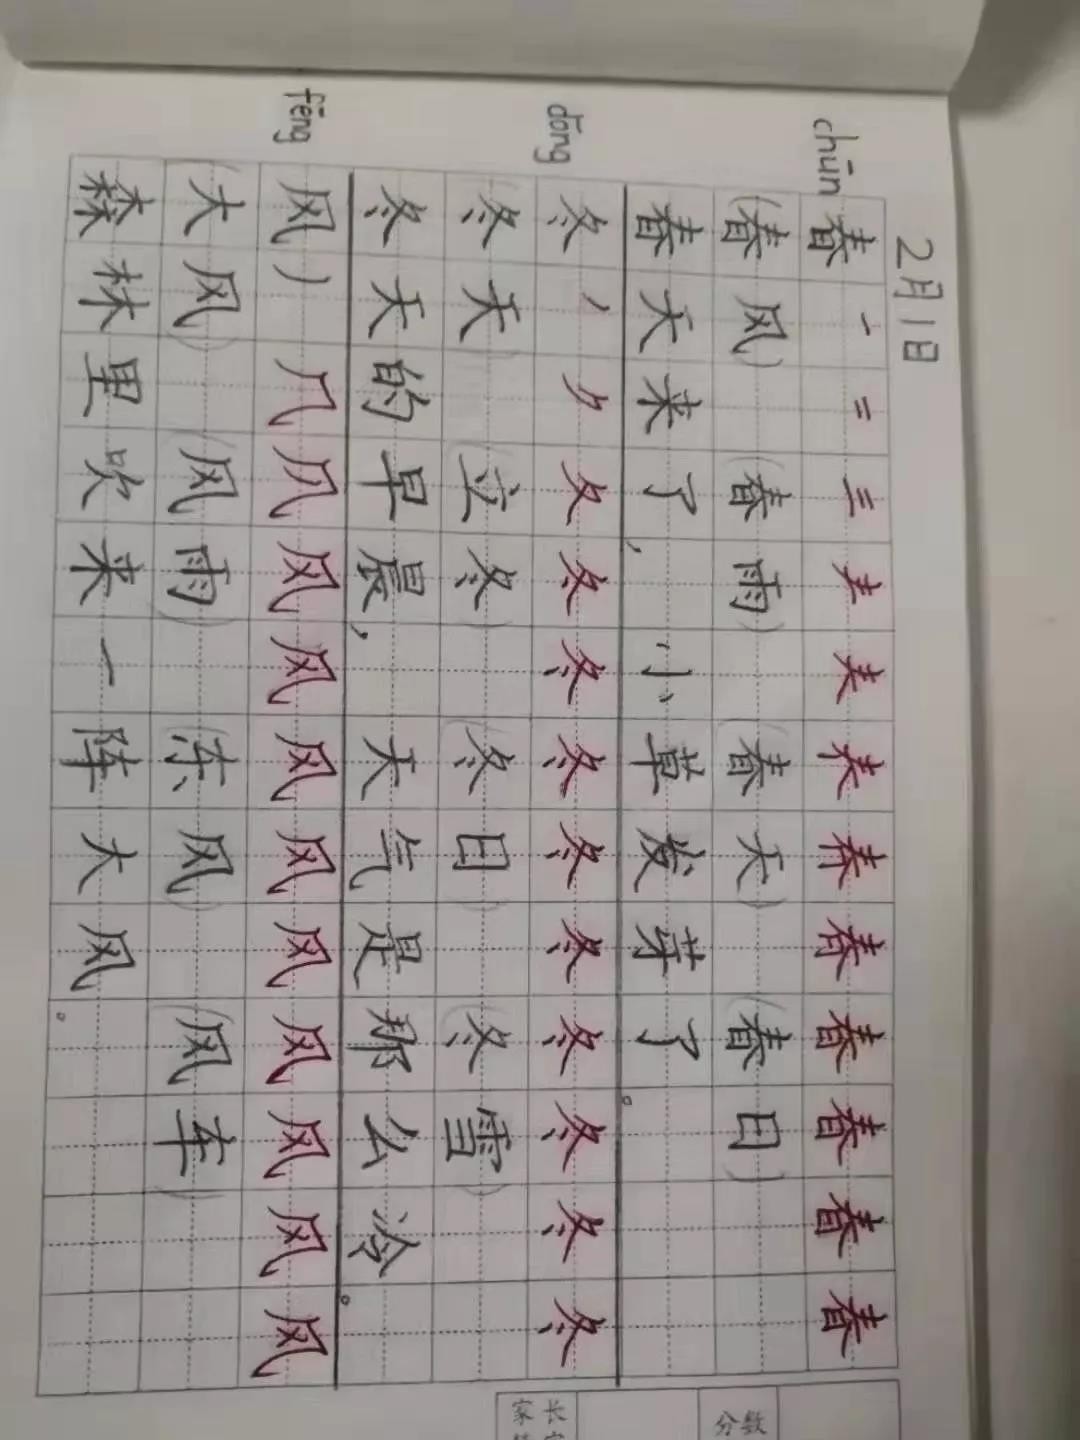 2月1日
chūn
春一二三𡗗夫𡗗春春春春春春
(春风) (春雨) (春天) (春日)
春天来了,小草发芽了。
dōng
冬丿ク夂冬冬冬冬冬冬冬冬冬
(冬天) (立冬) (冬日) (冬雪)
冬天的早晨,天气是那么冷。
fēng
风丿几凡风风风风风风风风风
(大风) (风雨) (东风) (风车)
森林里吹来一阵大风。
家长
分数